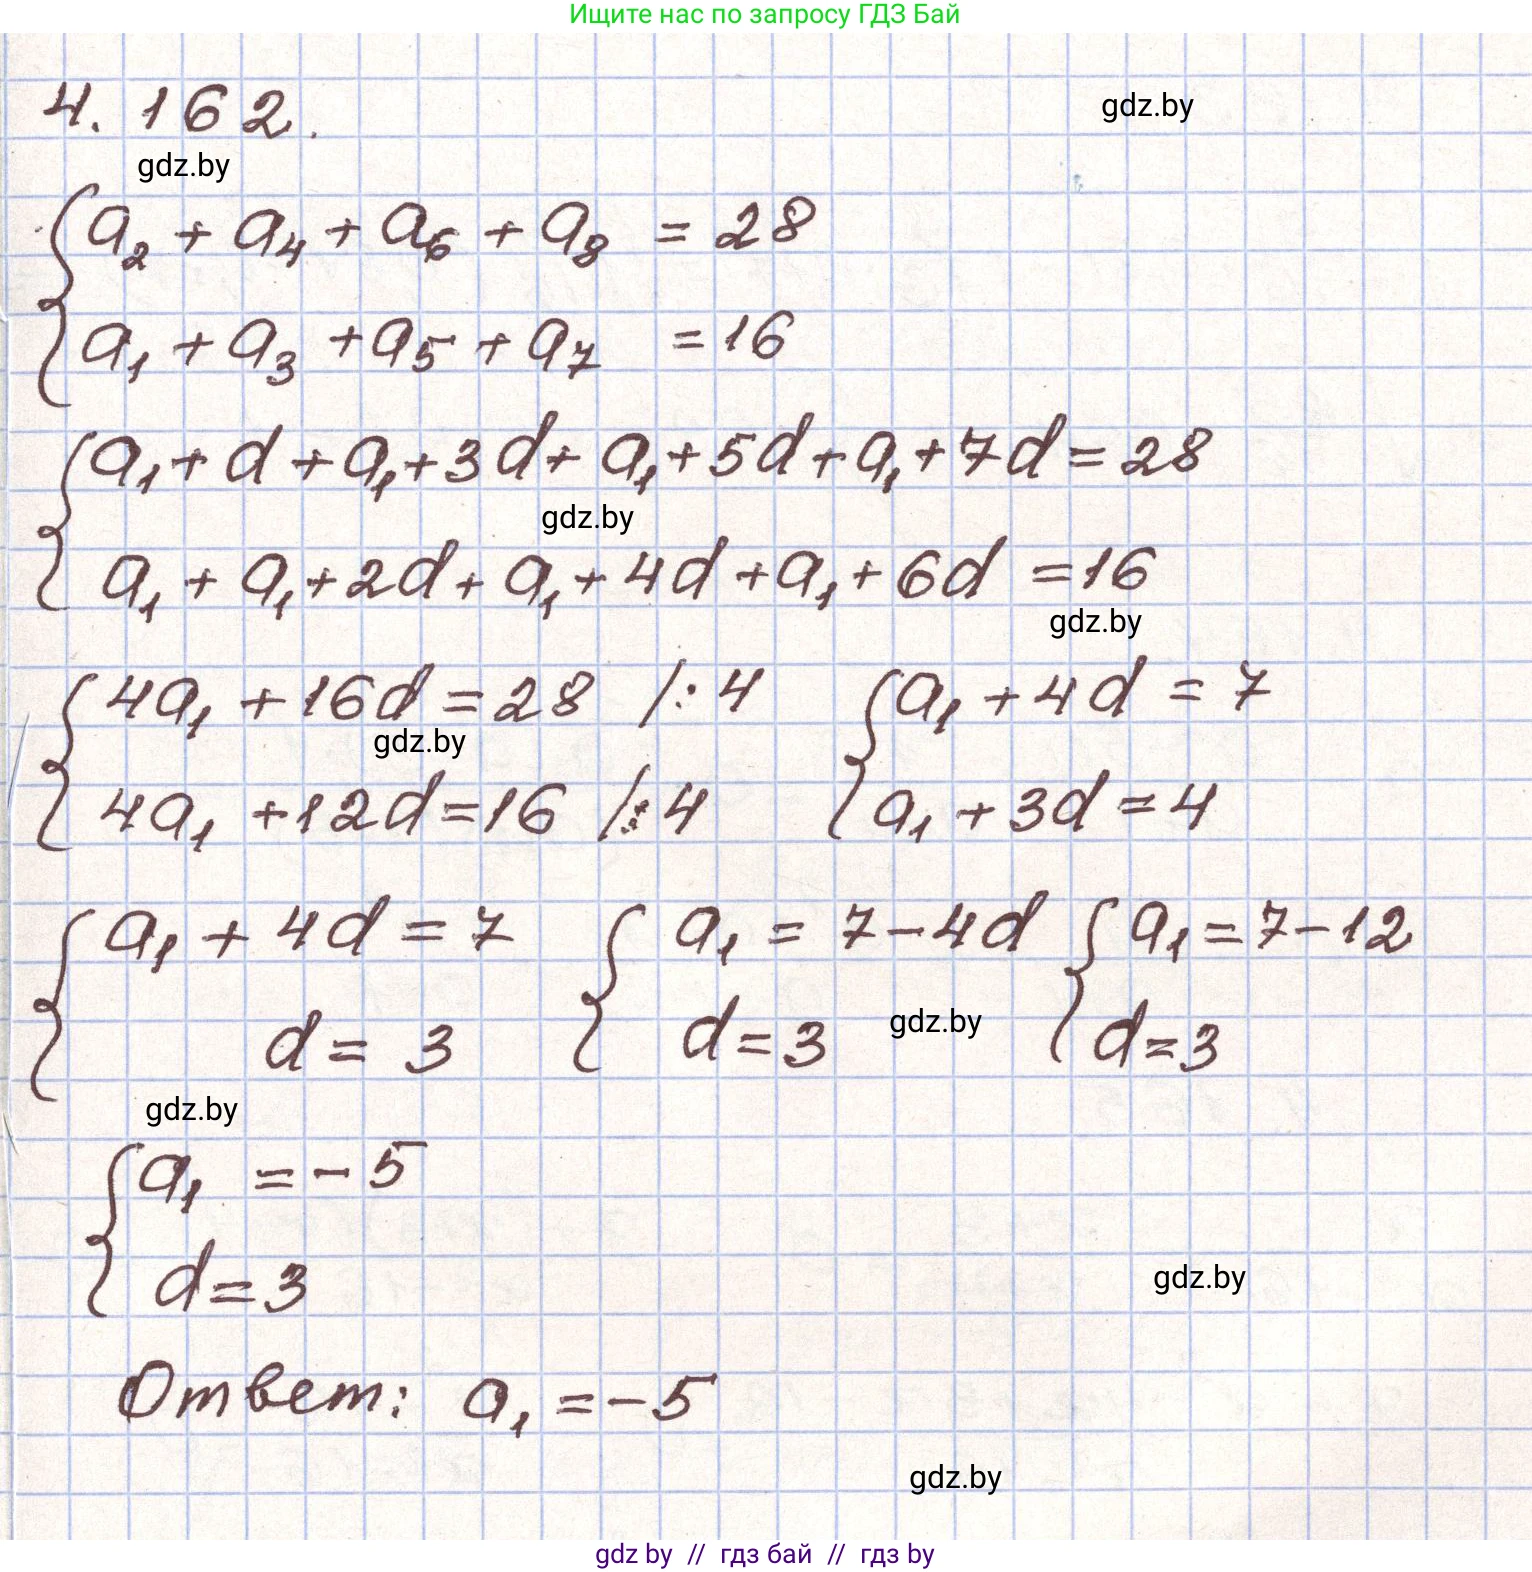 Ищите нас по запросу ГДЗ Бай
4.162.
gdz.by
gdz.by
a₂ + a₄ + a₆ + a₈ = 28
a₁ + a₃ + a₅ + a₇ = 16
a₁ + d + a₁ + 3d + a₁ + 5d + a₁ + 7d = 28
gdz.by
a₁ + a₁ + 2d + a₁ + 4d + a₁ + 6d = 16
gdz.by
4a₁ + 16d = 28 /:4 a₁ + 4d = 7
gdz.by
4a₁ + 12d = 16 /:4 a₁ + 3d = 4
a₁ + 4d = 7 a₁ = 7 - 4d a₁ = 7 - 12
d = 3 d = 3 gdz.by d = 3
gdz.by
a₁ = -5
d = 3
gdz.by
Ответ: a₁ = -5
gdz.by
gdz by // гдз бай // гдз by